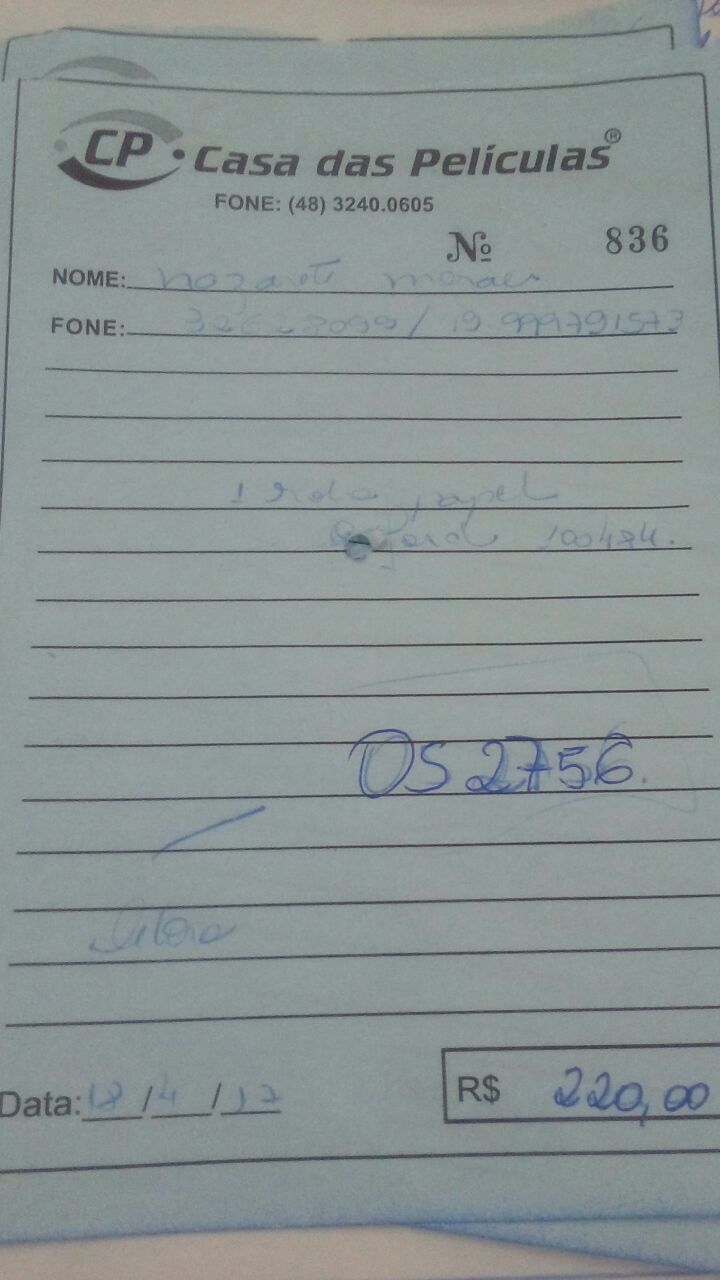 CP • Casa das Películas®
FONE: (48) 3240.0605
Nº 836
NOME: Nazarete moraes
FONE: / 19.999791573
1 rolo papel
100484.
OS 2756.
Data: 18/4/17
R$ 220,00